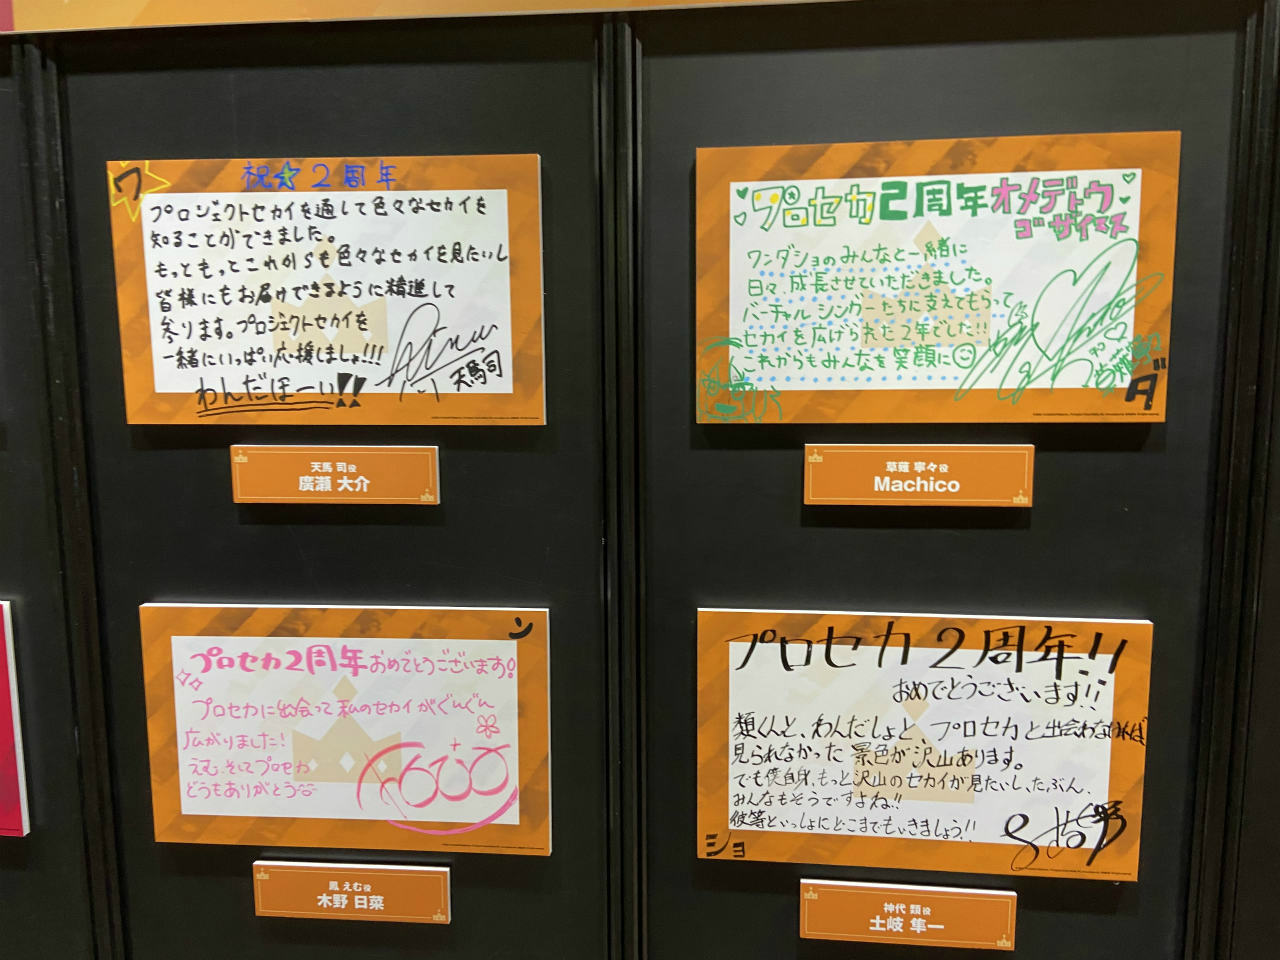 ワ
祝☆2周年
プロジェクトセカイを通して色々なセカイを
知ることができました。
もっともっとこれからも色々なセカイを見たいし
皆様にもお届けできるように精進して
参ります。プロジェクトセカイを
一緒にいっぱい応援しましょ!!!
わんだほーい!!
天馬司
天馬 司役
廣瀬 大介
プロセカ2周年オメデトウ
ゴザイマス
ワンダショのみんなと一緒に
日々、成長させていただきました。
バーチャルシンガーたちに支えてもらって
セカイを広げられた2年でした!!
これからもみんなを笑顔に
ダ
草薙 寧々役
Machico
ン
プロセカ2周年おめでとうございます!
プロセカに出会って私のセカイがぐんぐん
広がりました!
えむ、そしてプロセカ
どうもありがとう
鳳 えむ役
木野 日菜
プロセカ2周年!!
おめでとうございます!!
類くんと、わんだしょと プロセカと出会わなければ
見られなかった景色が沢山あります。
でも僕自身、もっと沢山のセカイが見たいし、たぶん、
みんなもそうですよね!!
彼等といっしょにどこまでもいきましょう!!
ショ
神代 類役
土岐 隼一